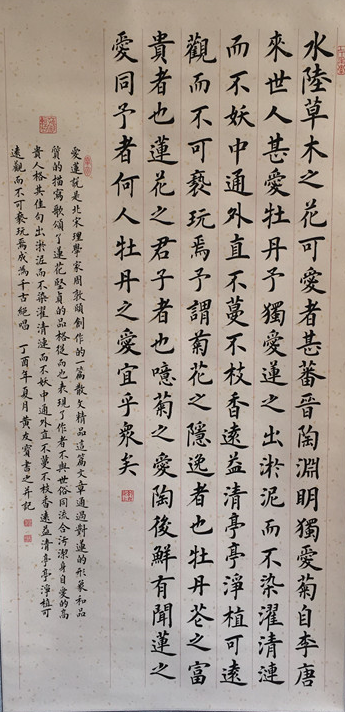 水陸草木之花可愛者甚蕃晉陶淵明獨愛菊自李唐
來世人甚愛牡丹予獨愛蓮之出淤泥而不染濯清漣
而不妖中通外直不蔓不枝香遠益清亭亭淨植可遠
觀而不可褻玩焉予謂菊花之隱逸者也牡丹花之富
貴者也蓮花之君子者也噫菊之愛陶後鮮有聞蓮之
愛同予者何人牡丹之愛宜乎衆矣
愛蓮說是北宋理學家周敦頤創作的一篇散文精品這篇文章通過對蓮的形象和品
質的描寫歌頌了蓮花堅貞的品格從而也表現了作者不與世俗同流合污潔身自愛的高
貴人格其佳句出淤泥而不染濯清漣而不妖中通外直不蔓不枝香遠益清亭亭淨植可
遠觀而不可褻玩焉成為千古絕唱 丁酉年夏月黃友寶書之并記